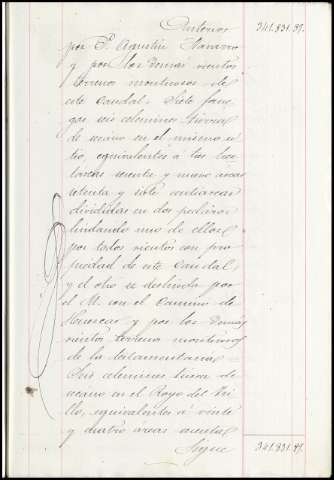 Anterior 341.831.89.
por P. Agustin Navarro
y por los demas vientos
terrenos montuosos de
este caudal. Siete fane-
gas seis celemines tierra
de secano en el mismo si-
tio, equivalentes á tres hec-
tareas veinte y nueve áreas
setenta y siete centiareas
divididas en dos pedazos
lindando uno de ellos
por todos vientos con pro-
piedad de este Caudal,
y el otro se deslinda por
el M. con el Camino de
Huescar y por los demás
vientos terreno montuoso
de la testamentaria.
Seis celemines tierra de
secano en el Royo del
equivalentes á veinte
y cuatro áreas
Sigue 341.831.89.